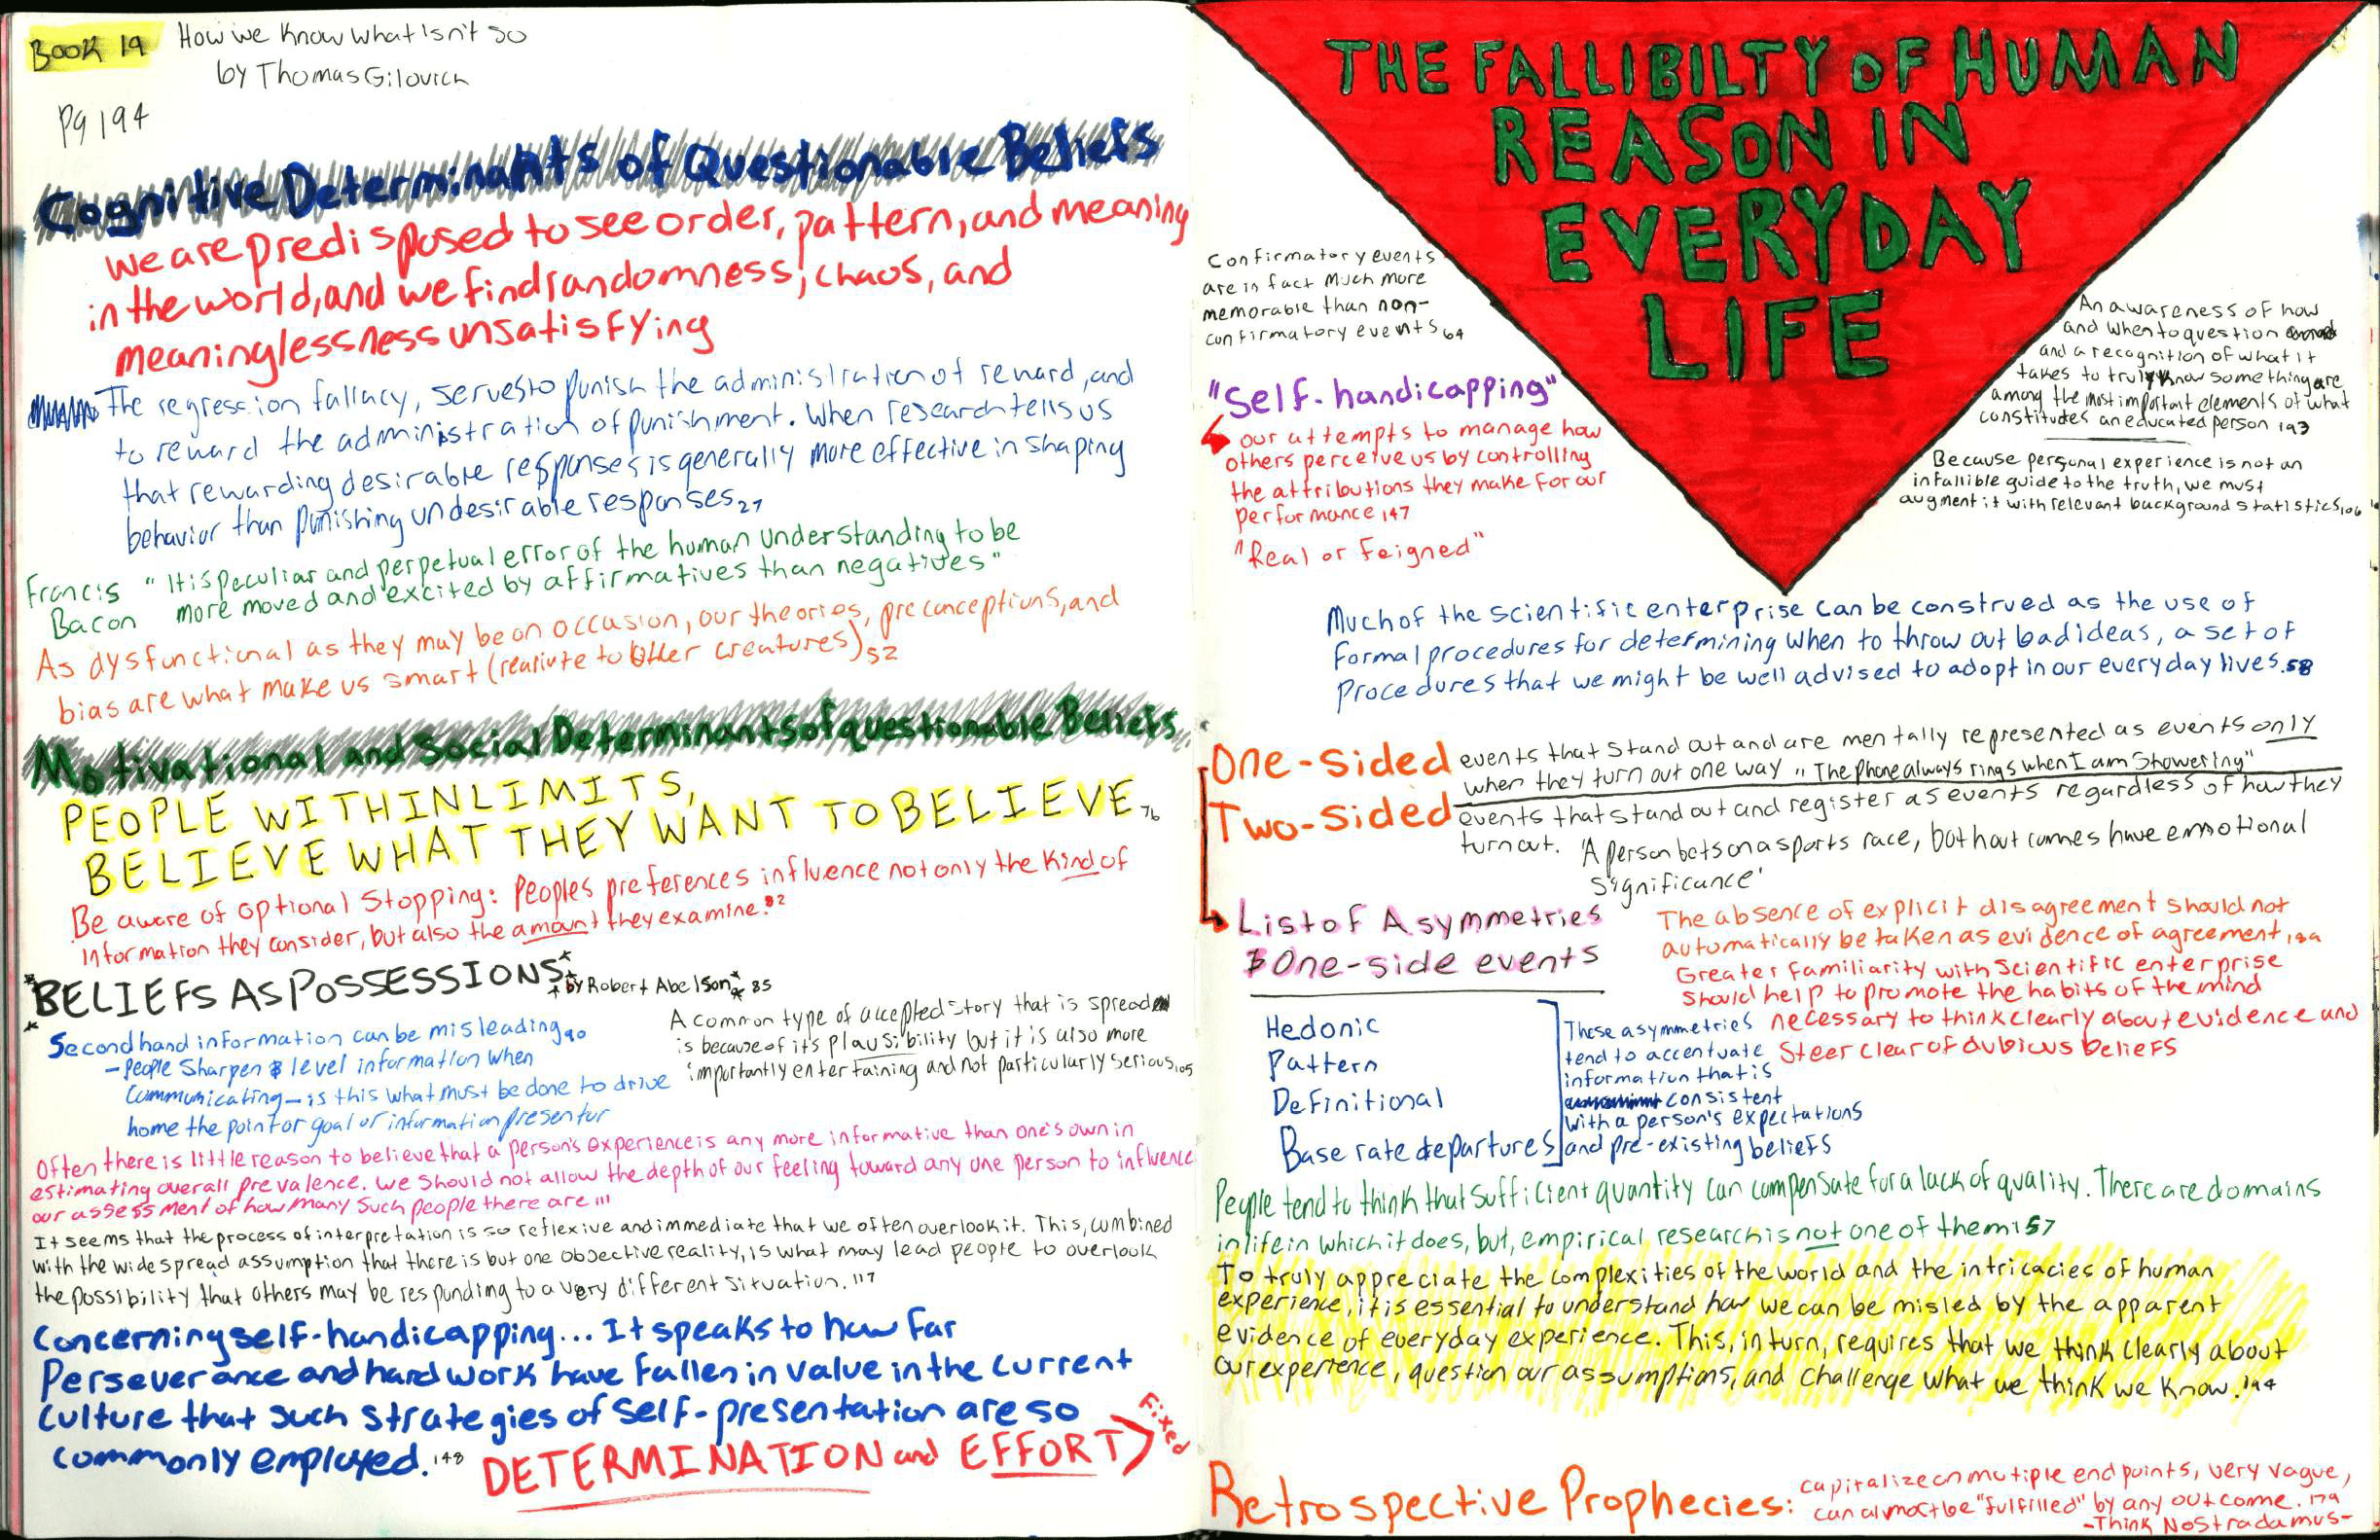 BOOK 19
How we know what isn't so
by Thomas Gilovich
Pg 194
Cognitive Determinants of Questionable Beliefs
we are predisposed to see order, pattern, and meaning
in the world, and we find randomness, chaos, and
meaninglessness unsatisfying
The regression fallacy, serves to punish the administration of reward, and
to reward the administration of punishment. When research tells us
that rewarding desirable responses is generally more effective in shaping
behavior than punishing undesirable responses 27
Francis Bacon "It is peculiar and perpetual error of the human understanding to be
more moved and excited by affirmatives than negatives"
As dysfunctional as they may be on occasion, our theories, preconceptions, and
bias are what make us smart (realivte to other creatures) 52
Motivational and Social Determinants of questionable Beliefs
PEOPLE WITHIN LIMITS,
BELIEVE WHAT THEY WANT TO BELIEVE 76
Be aware of Optional Stopping: Peoples preferences influence not only the kind of
information they consider, but also the amount they examine. 82
*BELIEFS AS POSSESSIONS* *by Robert Abelson* 85
Second hand information can be misleading 90
- People sharpen & level information when
communicating - is this what must be done to drive
home the point or goal of information presentor
A common type of accepted story that is spread
is because of it's plausibility but it is also more
importantly entertaining and not particularly serious 105
Often there is little reason to believe that a person's experience is any more informative than one's own in
estimating overall prevalence. we should not allow the depth of our feeling toward any one person to influence
our assessment of how many such people there are 111
It seems that the process of interpretation is so reflexive and immediate that we often overlook it. This, combined
with the widespread assumption that there is but one objective reality, is what may lead people to overlook
the possibility that others may be responding to a very different situation. 117
Concerning self-handicapping... It speaks to how far
Perseverance and hard work have fallen in value in the current
culture that such strategies of self-presentation are so
commonly employed. 148
DETERMINATION and EFFORT > Fixed
THE FALLIBILTY OF HUMAN
REASON IN
EVERYDAY
LIFE
Confirmatory events
are in fact much more
memorable than non-
confirmatory events 64
"Self-handicapping"
our attempts to manage how
others perceive us by controlling
the attributions they make for our
performance 147
"Real or Feigned"
An awareness of how
and when to question
and a recognition of what it
takes to truly know something are
among the most important elements of what
constitudes an educated person 193
Because personal experience is not an
infallible guide to the truth, we must
augment it with relevant background statistics 106
Much of the scientific enterprise can be construed as the use of
formal procedures for determining when to throw out bad ideas, a set of
procedures that we might be well advised to adopt in our everyday lives. 58
One-Sided events that stand out and are mentally represented as events only
when they turn out one way "The phone always rings when I am showering"
Two-Sided events that stand out and register as events regardless of how they
turn out. 'A person bets on a sports race, both out comes have emotional
significance'
List of Asymmetries
& One-side events
Hedonic
Pattern
Definitional
Base rate departures
These asymmetries
tend to accentuate
information that is
consistent
with a person's expectations
and pre-existing beliefs
The absence of explicit disagreement should not
automatically be taken as evidence of agreement,
Greater familiarity with scientific enterprise
should help to promote the habits of the mind
necessary to think clearly about evidence and
steer clear of dubious beliefs
People tend to think that sufficient quantity can compensate for a lack of quality. There are domains
in life in which it does, but, empirical research is not one of them 157
To truly appreciate the complexities of the world and the intricacies of human
experience, it is essential to understand how we can be misled by the apparent
evidence of everyday experience. This, in turn, requires that we think clearly about
our experience, question our assumptions, and challenge what we think we know. 194
Retrospective Prophecies:
capitalize on mutiple endpoints, very vague,
can almost be "fulfilled" by any outcome. 179
-Think Nostradamus-